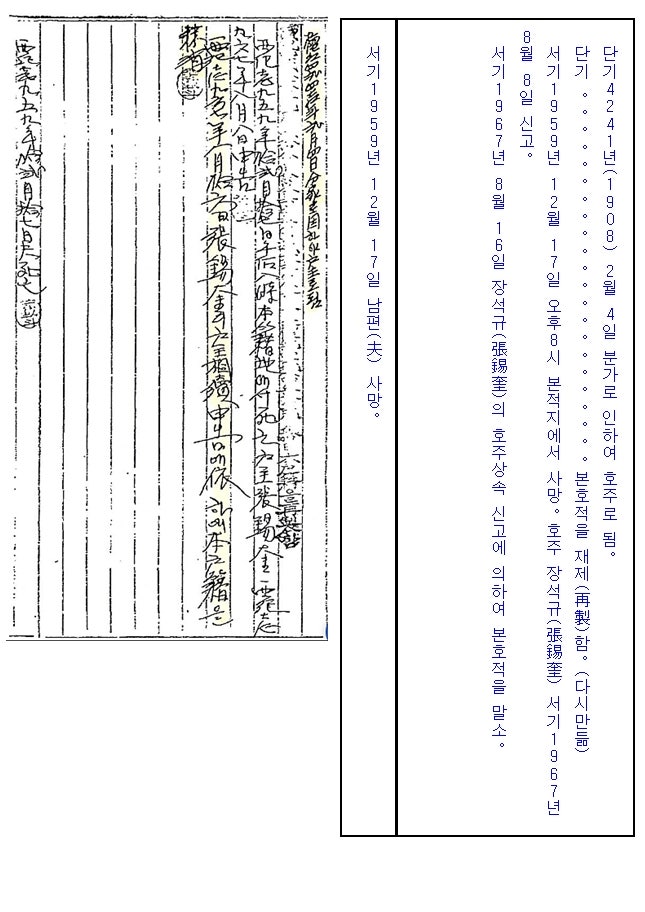 단기4241년(1908) 2월 4일 분가로 인하여 호주로 됨.
단기 。。。。。。。。。。。。。。。。。。본호적을 재제(再製)함. (다시만듦)
서기1959년 12월 17일 오후8시 본적지에서 사망. 호주 장석규(張錫奎) 서기1967년
8월 8일 신고.
서기1967년 8월 16일 장석규(張錫奎)의 호주상속 신고에 의하여 본호적을 말소.
서기1959년 12월 17일 남편(夫) 사망.
九五九年拾貳月拾七日午后八時本籍地에서死亡戶主張錫奎西紀壹
九六七年八月八日申告
年八月拾六日張錫奎戶主相續申告에依하야本戶籍을
抹消
西紀壹九五九年拾貳月拾七日夫死亡